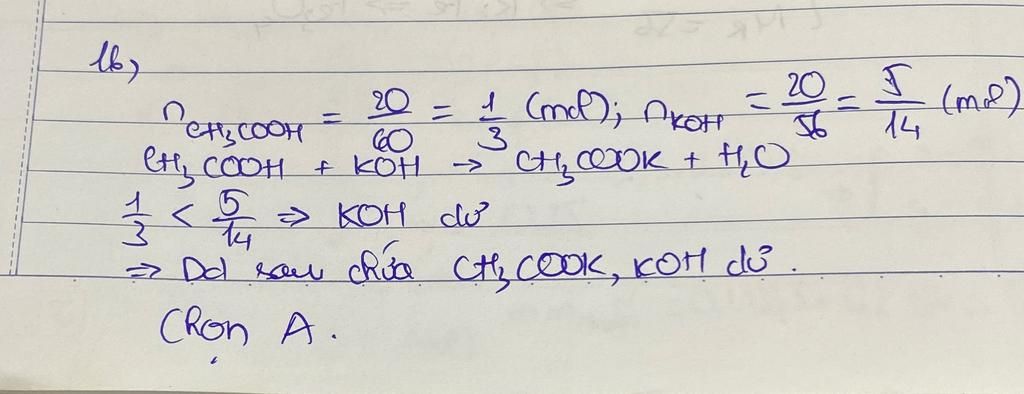 16,
n CH₃COOH = 20/60 = 1/3 (mol); n KOH = 20/56 = 5/14 (mol)
CH₃COOH + KOH → CH₃COOK + H₂O
1/3 < 5/14 ⇒ KOH dư
⇒ Dd sau chứa CH₃COOK, KOH dư.
Chọn A.